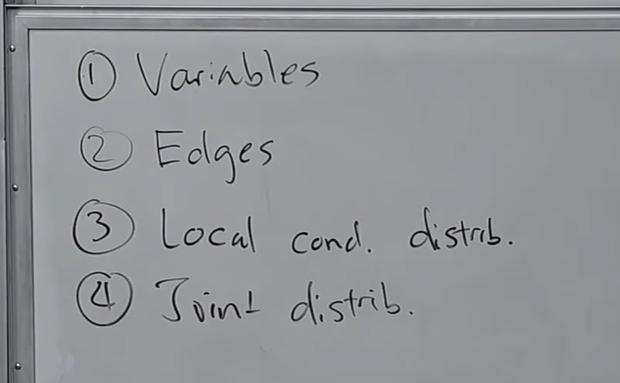 ① Variables
② Edges
③ Local cond. distrib.
④ Joint distrib.